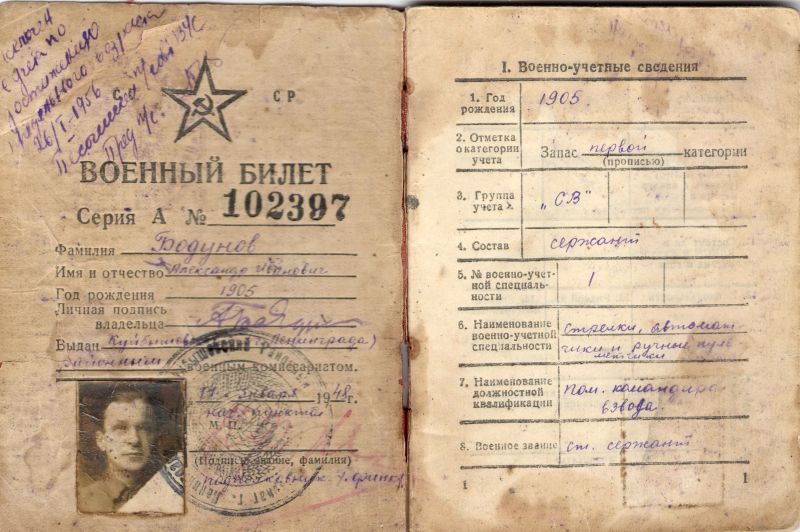 учета по
достижению
предельного возраста
26/I-1956
С С СР
ВОЕННЫЙ БИЛЕТ
Серия А № 102397
Фамилия Бодунов
Имя и отчество Александр Иванович
Год рождения 1905
Личная подпись
владельца
Выдан Куйбышевским (Ленинграда)
Районным военным комиссариатом.
17 января 1948г.
нач. пункта
М. П.
(Подпись, звание, фамилия)
подполковник
I. Военно-учетные сведения
1. Год рождения 1905.
2. Отметка о категории учета Запас первой категории
(прописью)
3. Группа учета „СВ"
4. Состав сержант
5. № военно-учетной специальности 1
6. Наименование военно-учетной специальности стрелки, автоматчики и ручные пулеметчики
7. Наименование должностной квалификации Пом. командира взвода.
8. Военное звание ст. сержант
1